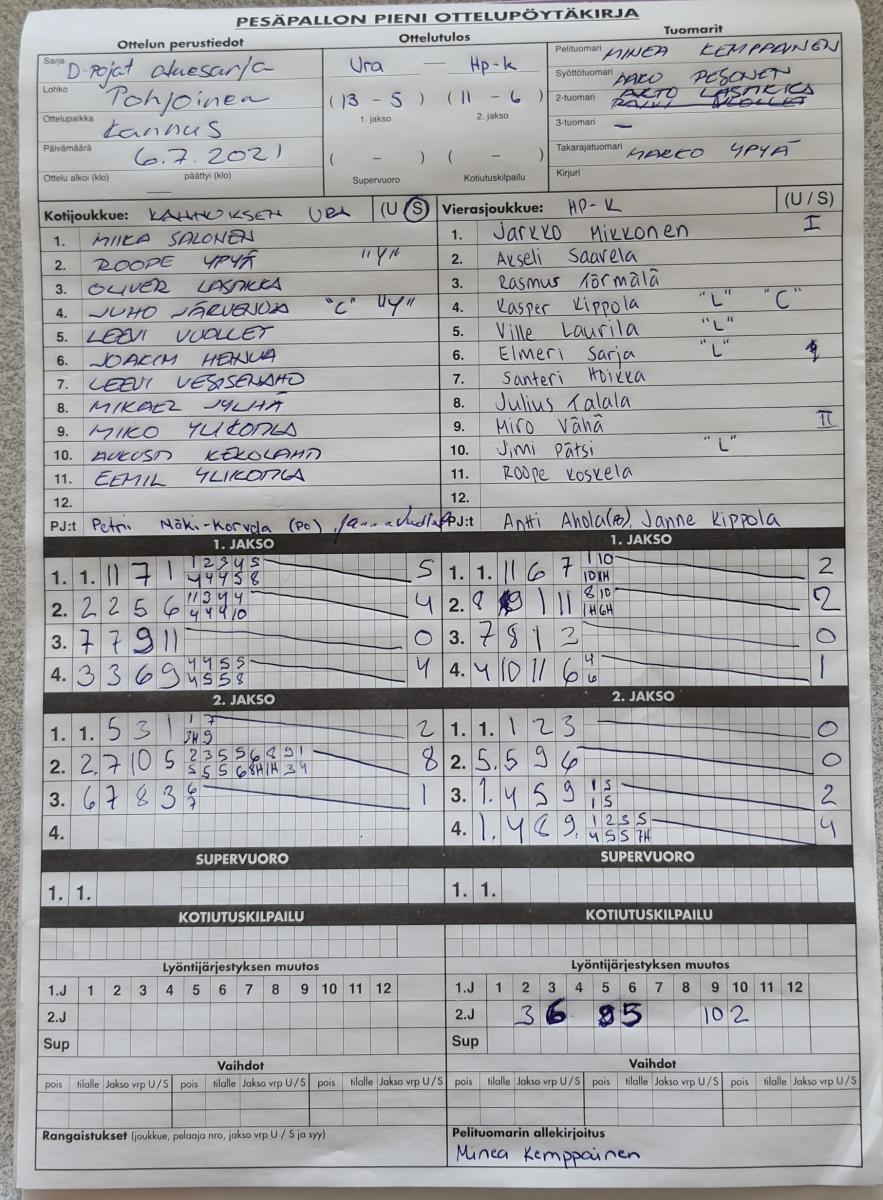 PESÄPALLON PIENI OTTELUPÖYTÄKIRJA
Ottelun perustiedot
Ottelutulos
Tuomarit
Sarja D-Pojat aluesarja
Lohko Pohjoinen
Ottelupaikka Kannus
Päivämäärä 6.7.2021
Ottelu alkoi (klo) päättyi (klo)
Ura — Hp-k
(13 - 5) (11 - 6)
1. jakso 2. jakso
( - ) ( - )
Supervuoro Kotiutuskilpailu
Pelituomari MINEA KEMPPAINEN
Syöttötuomari PESONEN
2-tuomari
3-tuomari —
Takarajatuomari MARKO YPYÄ
Kirjuri
Kotijoukkue: KANNUKSEN URA (U / S)
1. MIIKA SALONEN
2. ROOPE YPYÄ "Y"
3. OLIVER LASTIKKA
4. JUHO JÄRVENOJA "C" "Y"
5. LEEVI VUOLLET
6. JOAKIM
7. LEEVI VESISENAHO
8. MIKAEL JYLHÄ
9. MIKO YLIKOTILA
10. AUKUSTI KEKOLAHTI
11. EEMIL YLIKOTILA
12.
PJ:t Petri Mäki-Korvela (PO)
Vierasjoukkue: HP-K (U / S)
1. Jarkko Mikkonen I
2. Akseli Saarela
3. Rasmus Törmälä
4. Kasper Kippola "L" "C"
5. Ville Laurila "L"
6. Elmeri Sarja "L"
7. Santeri Hoikka
8. Julius Talala
9. Miro Vähä II
10. Jimi Pätsi "L"
11. Roope Koskela
12.
PJ:t Antti Ahola(PO), Janne Kippola
1. JAKSO
1. 1. 11 7 1 1 2 3 4 5 5
4 4 4 5 8
2. 2 2 5 6 1 1 3 4 4 4
4 4 4 10
3. 7 7 9 11 0
4. 3 3 6 9 4 4 5 5 4
4 5 5 8
1. JAKSO
1. 1. 11 6 7 1 10 2
10 1H
2. 8 9 1 11 8 10 2
1H 6H
3. 7 8 1 3 0
4. 4 10 11 6 4 1
6
2. JAKSO
1. 1. 5 3 1 1 7 2
3H 9
2. 2. 7 10 5 2 3 5 5 6 8 9 1 8
5 5 5 6 8H 1H 3 4
3. 6 7 8 3 6 1
7
4.
2. JAKSO
1. 1. 1 2 3 0
2. 5. 5 9 6 0
3. 1. 4 5 9 1 5 2
1 5
4. 1. 4 8 9. 1 2 3 5 4
4 5 5 7H
SUPERVUORO
1. 1.
SUPERVUORO
1. 1.
KOTIUTUSKILPAILU
KOTIUTUSKILPAILU
Lyöntijärjestyksen muutos
1.J 1 2 3 4 5 6 7 8 9 10 11 12
2.J
Sup
Lyöntijärjestyksen muutos
1.J 1 2 3 4 5 6 7 8 9 10 11 12
2.J 3 6 5 10 2
Sup
Vaihdot
pois tilalle Jakso vrp U / S pois tilalle Jakso vrp U / S pois tilalle Jakso vrp U / S
Vaihdot
pois tilalle Jakso vrp U / S pois tilalle Jakso vrp U / S pois tilalle Jakso vrp U / S
Rangaistukset (joukkue, pelaaja nro, jakso vrp U / S ja syy)
Pelituomarin allekirjoitus
Minea Kemppainen